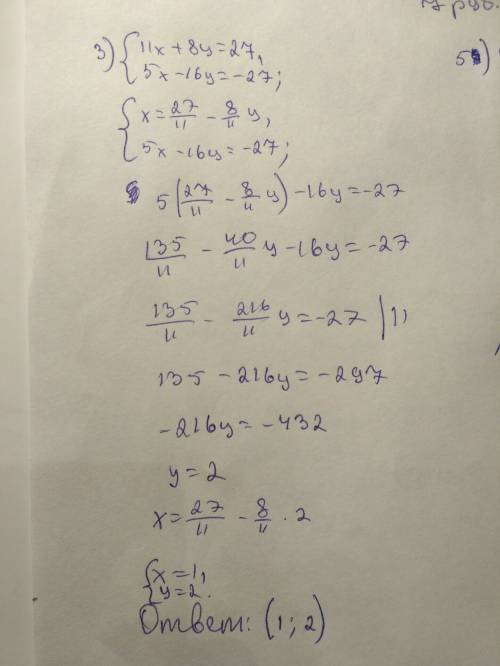 7 руб.
3) { 11x + 8y = 27,
5x - 16y = -27;
5)
{ x = 27/11 - 8/11 y,
5x - 16y = -27;
5(27/11 - 8/11 y) - 16y = -27
135/11 - 40/11 y - 16y = -27
135/11 - 216/11 y = -27 | 11
135 - 216y = -297
-216y = -432
y = 2
x = 27/11 - 8/11 · 2
{ x = 1,
y = 2.
Ответ: (1; 2)